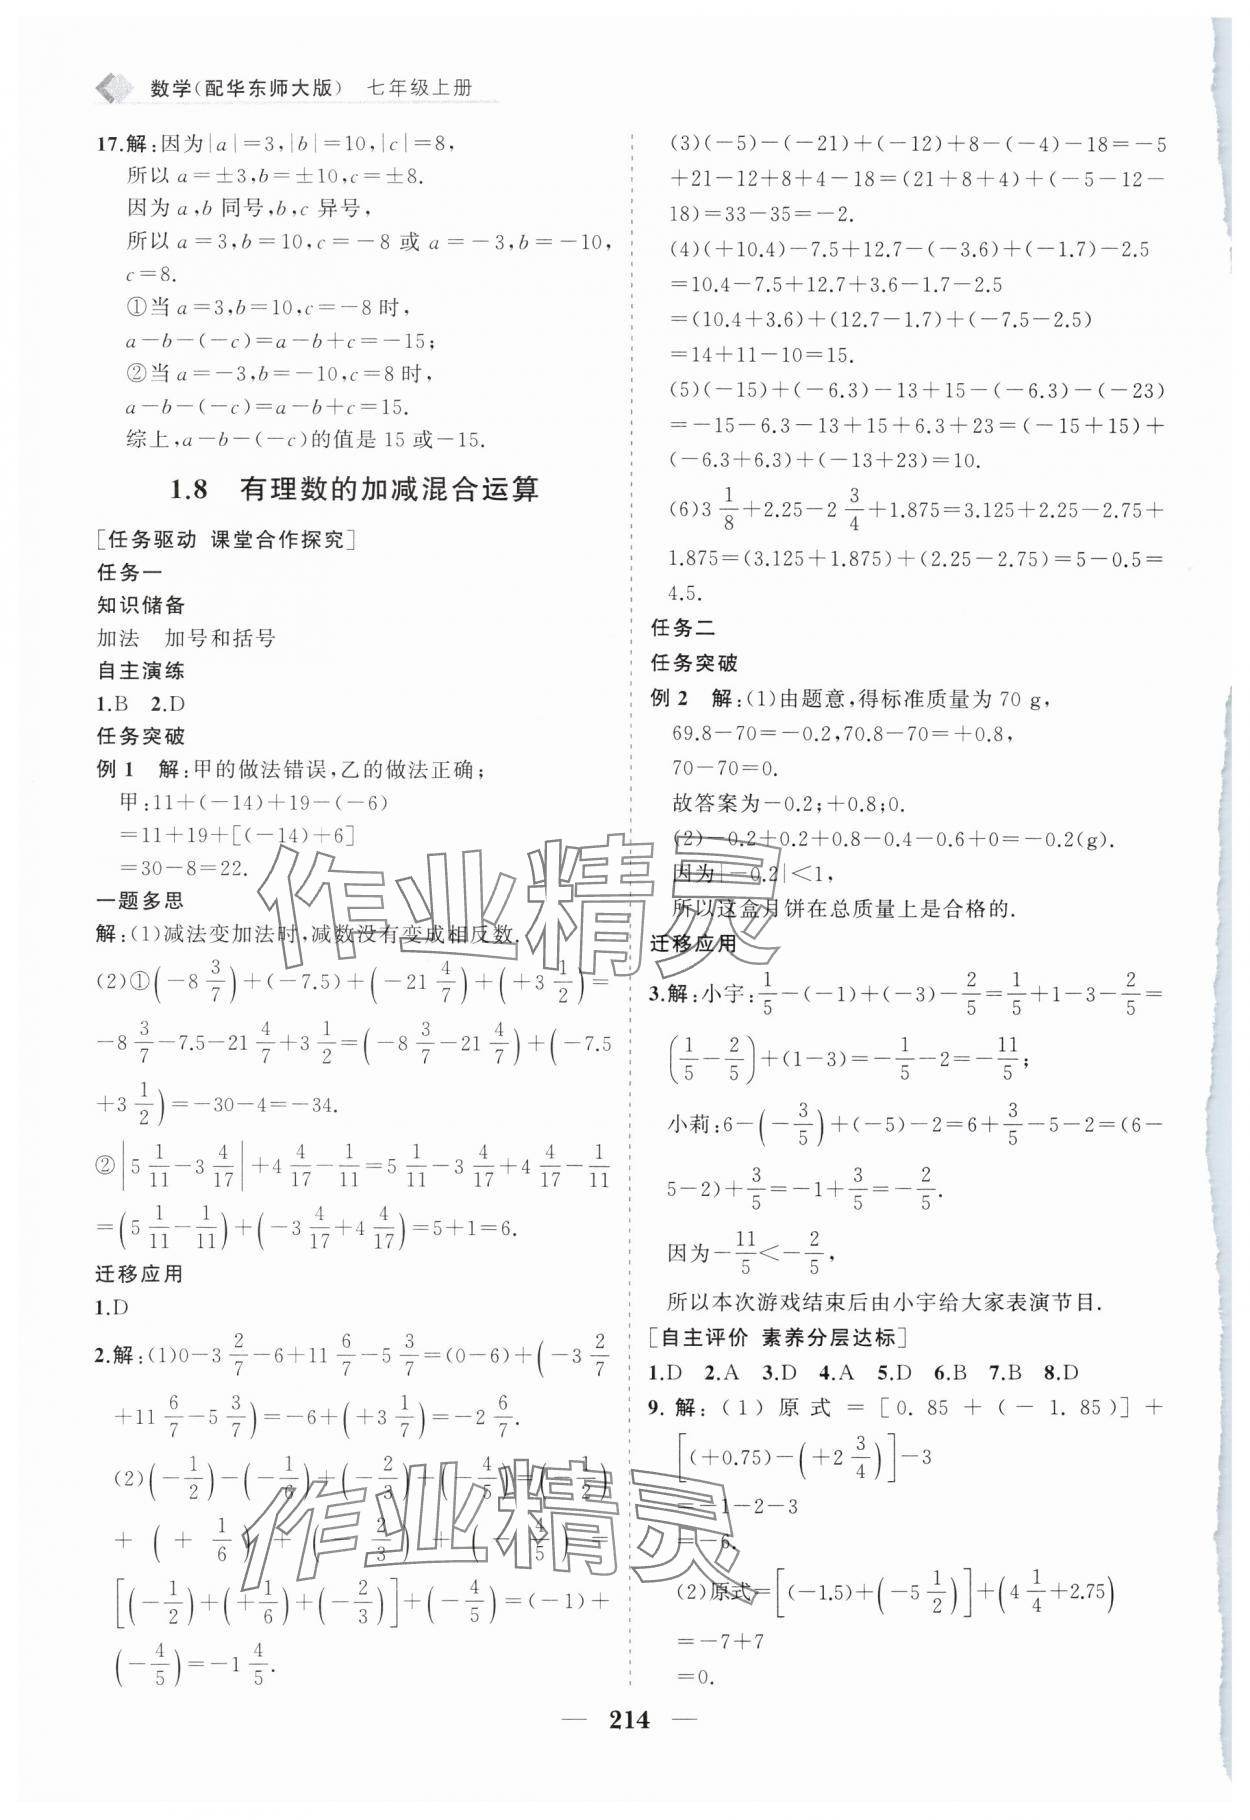 数学(配华东师大版) 七年级上册
17.解:因为|a|=3,|b|=10,|c|=8,
所以 a=±3,b=±10,c=±8.
因为 a,b 同号,b,c 异号,
所以 a=3,b=10,c=-8 或 a=-3,b=-10,
c=8.
①当 a=3,b=10,c=-8 时,
a-b-(-c)=a-b+c=-15;
②当 a=-3,b=-10,c=8 时,
a-b-(-c)=a-b+c=15.
综上,a-b-(-c)的值是 15 或-15.
1.8 有理数的加减混合运算
[任务驱动 课堂合作探究]
任务一
知识储备
加法 加号和括号
自主演练
1.B 2.D
任务突破
例 1 解:甲的做法错误,乙的做法正确;
甲:11+(-14)+19-(-6)
=11+19+[(-14)+6]
=30-8=22.
一题多思
解:(1)减法变加法时,减数没有变成相反数.
(2)①(-8 3/7)+(-7.5)+(-21 4/7)+(+3 1/2)=
-8 3/7-7.5-21 4/7+3 1/2=(-8 3/7-21 4/7)+(-7.5
+3 1/2)=-30-4=-34.
②|5 1/11-3 4/17|+4 4/17-1/11=5 1/11-3 4/17+4 4/17-1/11
=(5 1/11-1/11)+(-3 4/17+4 4/17)=5+1=6.
迁移应用
1.D
2.解:(1)0-3 2/7-6+11 6/7-5 3/7=(0-6)+(-3 2/7
+11 6/7-5 3/7)=-6+(+3 1/7)=-2 6/7.
(2)(-1/2)-(-1/6)+(-2/3)+(-4/5)=(-1/2)
+(+1/6)+(-2/3)+(-4/5)=
[(-1/2)+(+1/6)+(-2/3)]+(-4/5)=(-1)+
(-4/5)=-1 4/5.
(3)(-5)-(-21)+(-12)+8-(-4)-18=-5
+21-12+8+4-18=(21+8+4)+(-5-12-
18)=33-35=-2.
(4)(+10.4)-7.5+12.7-(-3.6)+(-1.7)-2.5
=10.4-7.5+12.7+3.6-1.7-2.5
=(10.4+3.6)+(12.7-1.7)+(-7.5-2.5)
=14+11-10=15.
(5)(-15)+(-6.3)-13+15-(-6.3)-(-23)
=-15-6.3-13+15+6.3+23=(-15+15)+
(-6.3+6.3)+(-13+23)=10.
(6)3 1/8+2.25-2 3/4+1.875=3.125+2.25-2.75+
1.875=(3.125+1.875)+(2.25-2.75)=5-0.5=
4.5.
任务二
任务突破
例 2 解:(1)由题意,得标准质量为 70 g,
69.8-70=-0.2,70.8-70=+0.8,
70-70=0.
故答案为-0.2;+0.8;0.
(2)-0.2+0.2+0.8-0.4-0.6+0=-0.2(g).
因为|-0.2|<1,
所以这盒月饼在总质量上是合格的.
迁移应用
3.解:小宇:1/5-(-1)+(-3)-2/5=1/5+1-3-2/5=
(1/5-2/5)+(1-3)=-1/5-2=-11/5;
小莉:6-(-3/5)+(-5)-2=6+3/5-5-2=(6-
5-2)+3/5=-1+3/5=-2/5.
因为-11/5<-2/5,
所以本次游戏结束后由小宇给大家表演节目.
[自主评价 素养分层达标]
1.D 2.A 3.D 4.A 5.D 6.B 7.B 8.D
9.解:(1)原式=[0.85+(-1.85)]+
[(+0.75)-(+2 3/4)]-3
=-1-2-3
=-6.
(2)原式=[(-1.5)+(-5 1/2)]+(4 1/4+2.75)
=-7+7
=0.
— 214 —
作业精灵
作业精灵